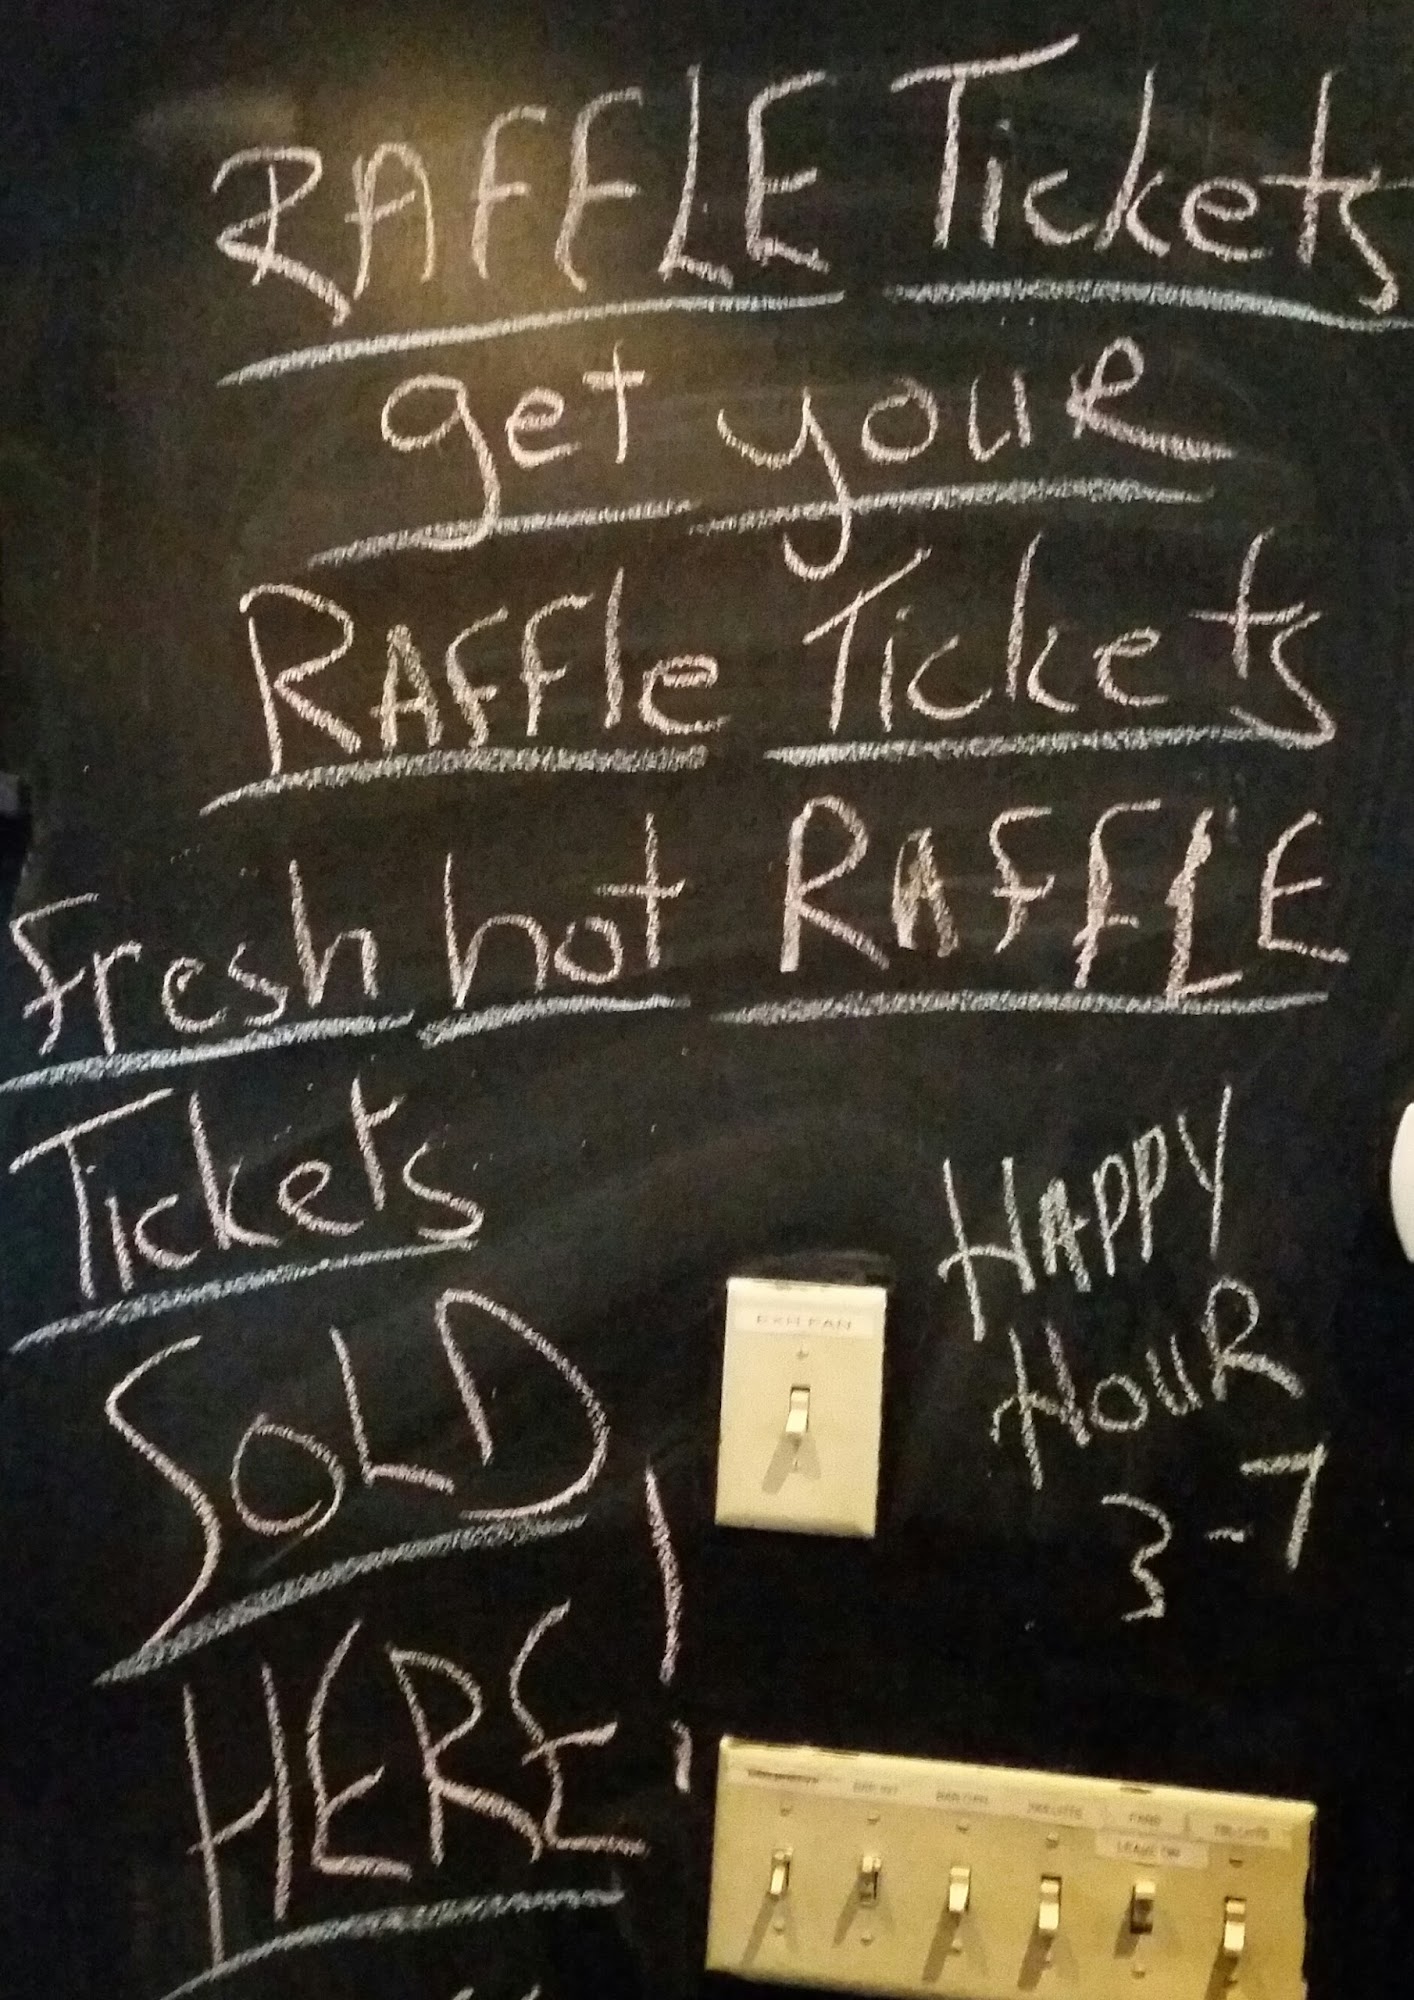 RAFFLE Tickets
get youR
RAFFle Tickets
Fresh hot RAFFLE
Tickets
SOLD
HERE!
HAPPY
HOUR
3-7
EXH FAN
LEAVE ON